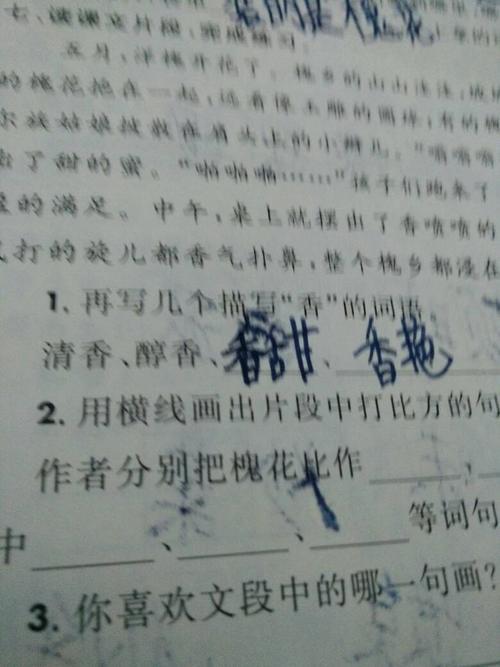 七、读课文片段，完成练习。
五月，洋槐开花了。槐乡的山山洼洼，
的槐花抱在一起，远看像玉雕的圆球；有的槐
尔族姑娘披散在肩头上的小辫儿。"嗡嗡嗡
出了甜的蜜。"啪啪啪……"孩子们跑来了
的满足。中午，桌上就摆出了香喷喷的
打的旋儿都香气扑鼻，整个槐乡都浸在
1. 再写几个描写"香"的词语。
清香、醇香、香甜、香艳
2. 用横线画出片段中打比方的句
作者分别把槐花比作
中、、等词句
3. 你喜欢文段中的哪一句画？